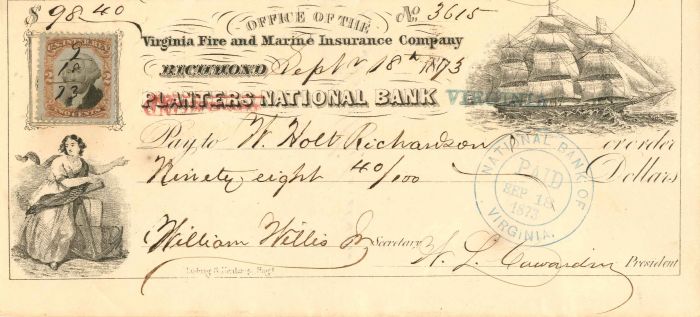 $ 98.40
OFFICE OF THE
No. 3615
Virginia Fire and Marine Insurance Company
RICHMOND Septr 18th 1873
PLANTERS NATIONAL BANK VIRGINIA
Pay to W. Holt Richardson or order
Ninety eight 40/100 Dollars
William Willis Jr Secretary
H. L. Cowardin President
U.S. INTER. REV.
2
9
18
73
TWO CENTS
NATIONAL BANK OF
PAID
SEP 18
1873
VIRGINIA.